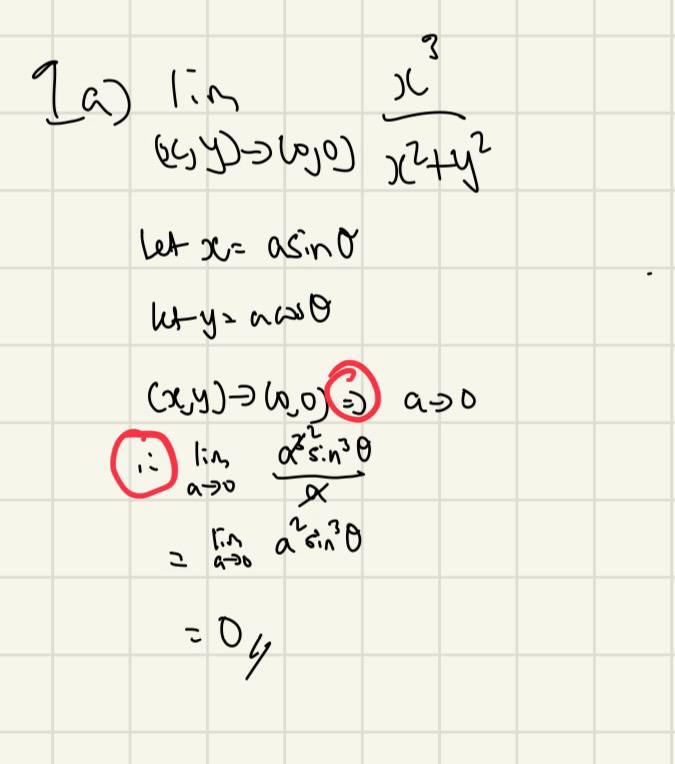 1a) lim x³
(x,y)→(0,0) x²+y²
let x = asinθ
let y = acosθ
(x,y)→(0,0) ⇒ a→0
∴ lim a³ ² sin³θ
a→0 a
= lim a² sin³θ
a→0
= 0